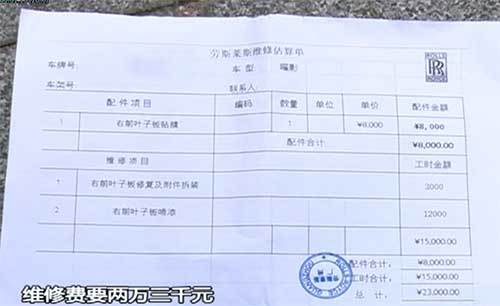 劳斯莱斯维修估算单
车牌号: 车型 曜影
车架号: 联系人:
ROLLS
RR
ROYCE
配件项目 编码 数量 单位 单价 配件金额
1 右前叶子板贴膜 1 ¥8,000 ¥8,000
配件合计: ¥8,000.00
维修项目 工时金额
1 右前叶子板修复及附件拆装 3000
2 右前叶子板喷漆 12000
¥15,000.00
配件合计: ¥8,000.00
工时合计: ¥15,000.00
总计: ¥23,000.00
维修费要两万三千元